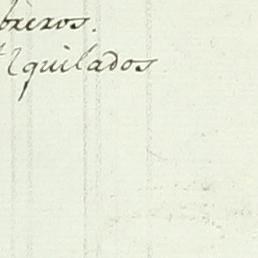 breros.
Alquilados